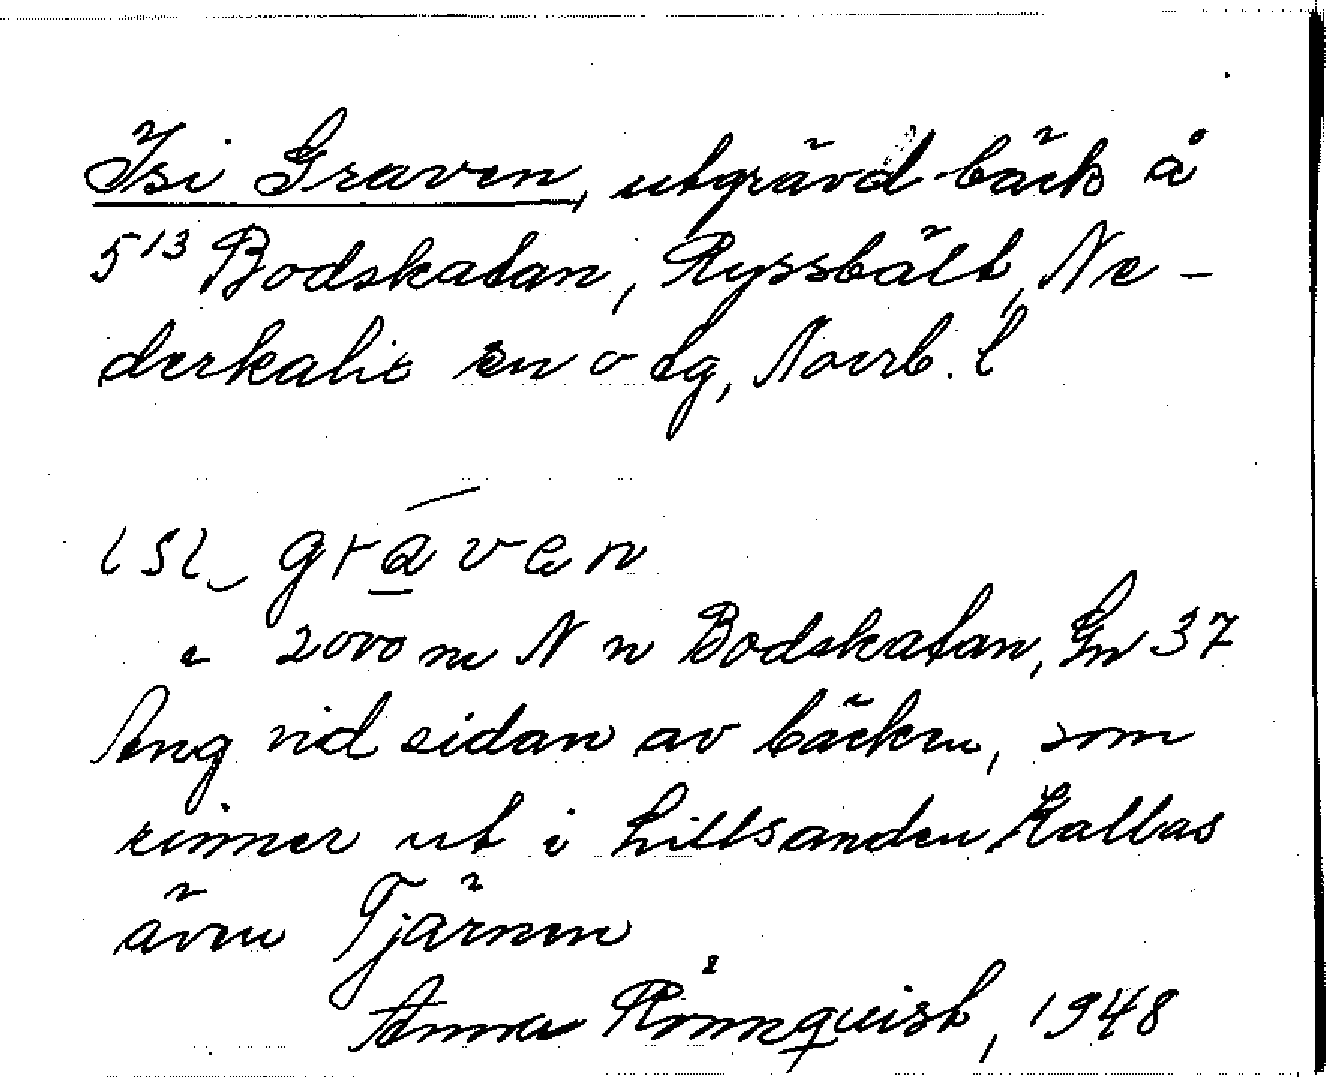 Isi Graven, utgrävd bäck å
5¹³ Bodskatan, Ryssbält, Ne-
derkalix sn o tg, Norrb. l
ısı‿ grāven
c 2000 m N n Bodskatan, Gn 37
Äng vid sidan av bäcken, som
rinner ut i Lillsanden Kallas
även Tjärnen
Anna Rönnquist, 1948